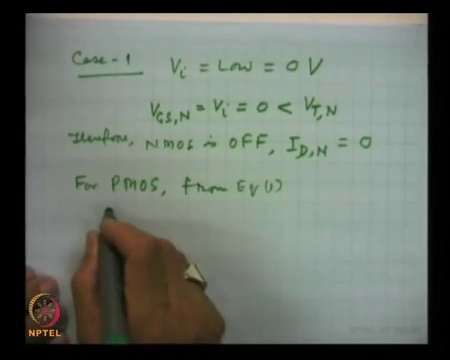 Case-1 Vi = Low = 0 V
VGS,N = Vi = 0 < VT,N
Therefore, NMOS is OFF, ID,N = 0
For PMOS, from Eq (1)
NPTEL